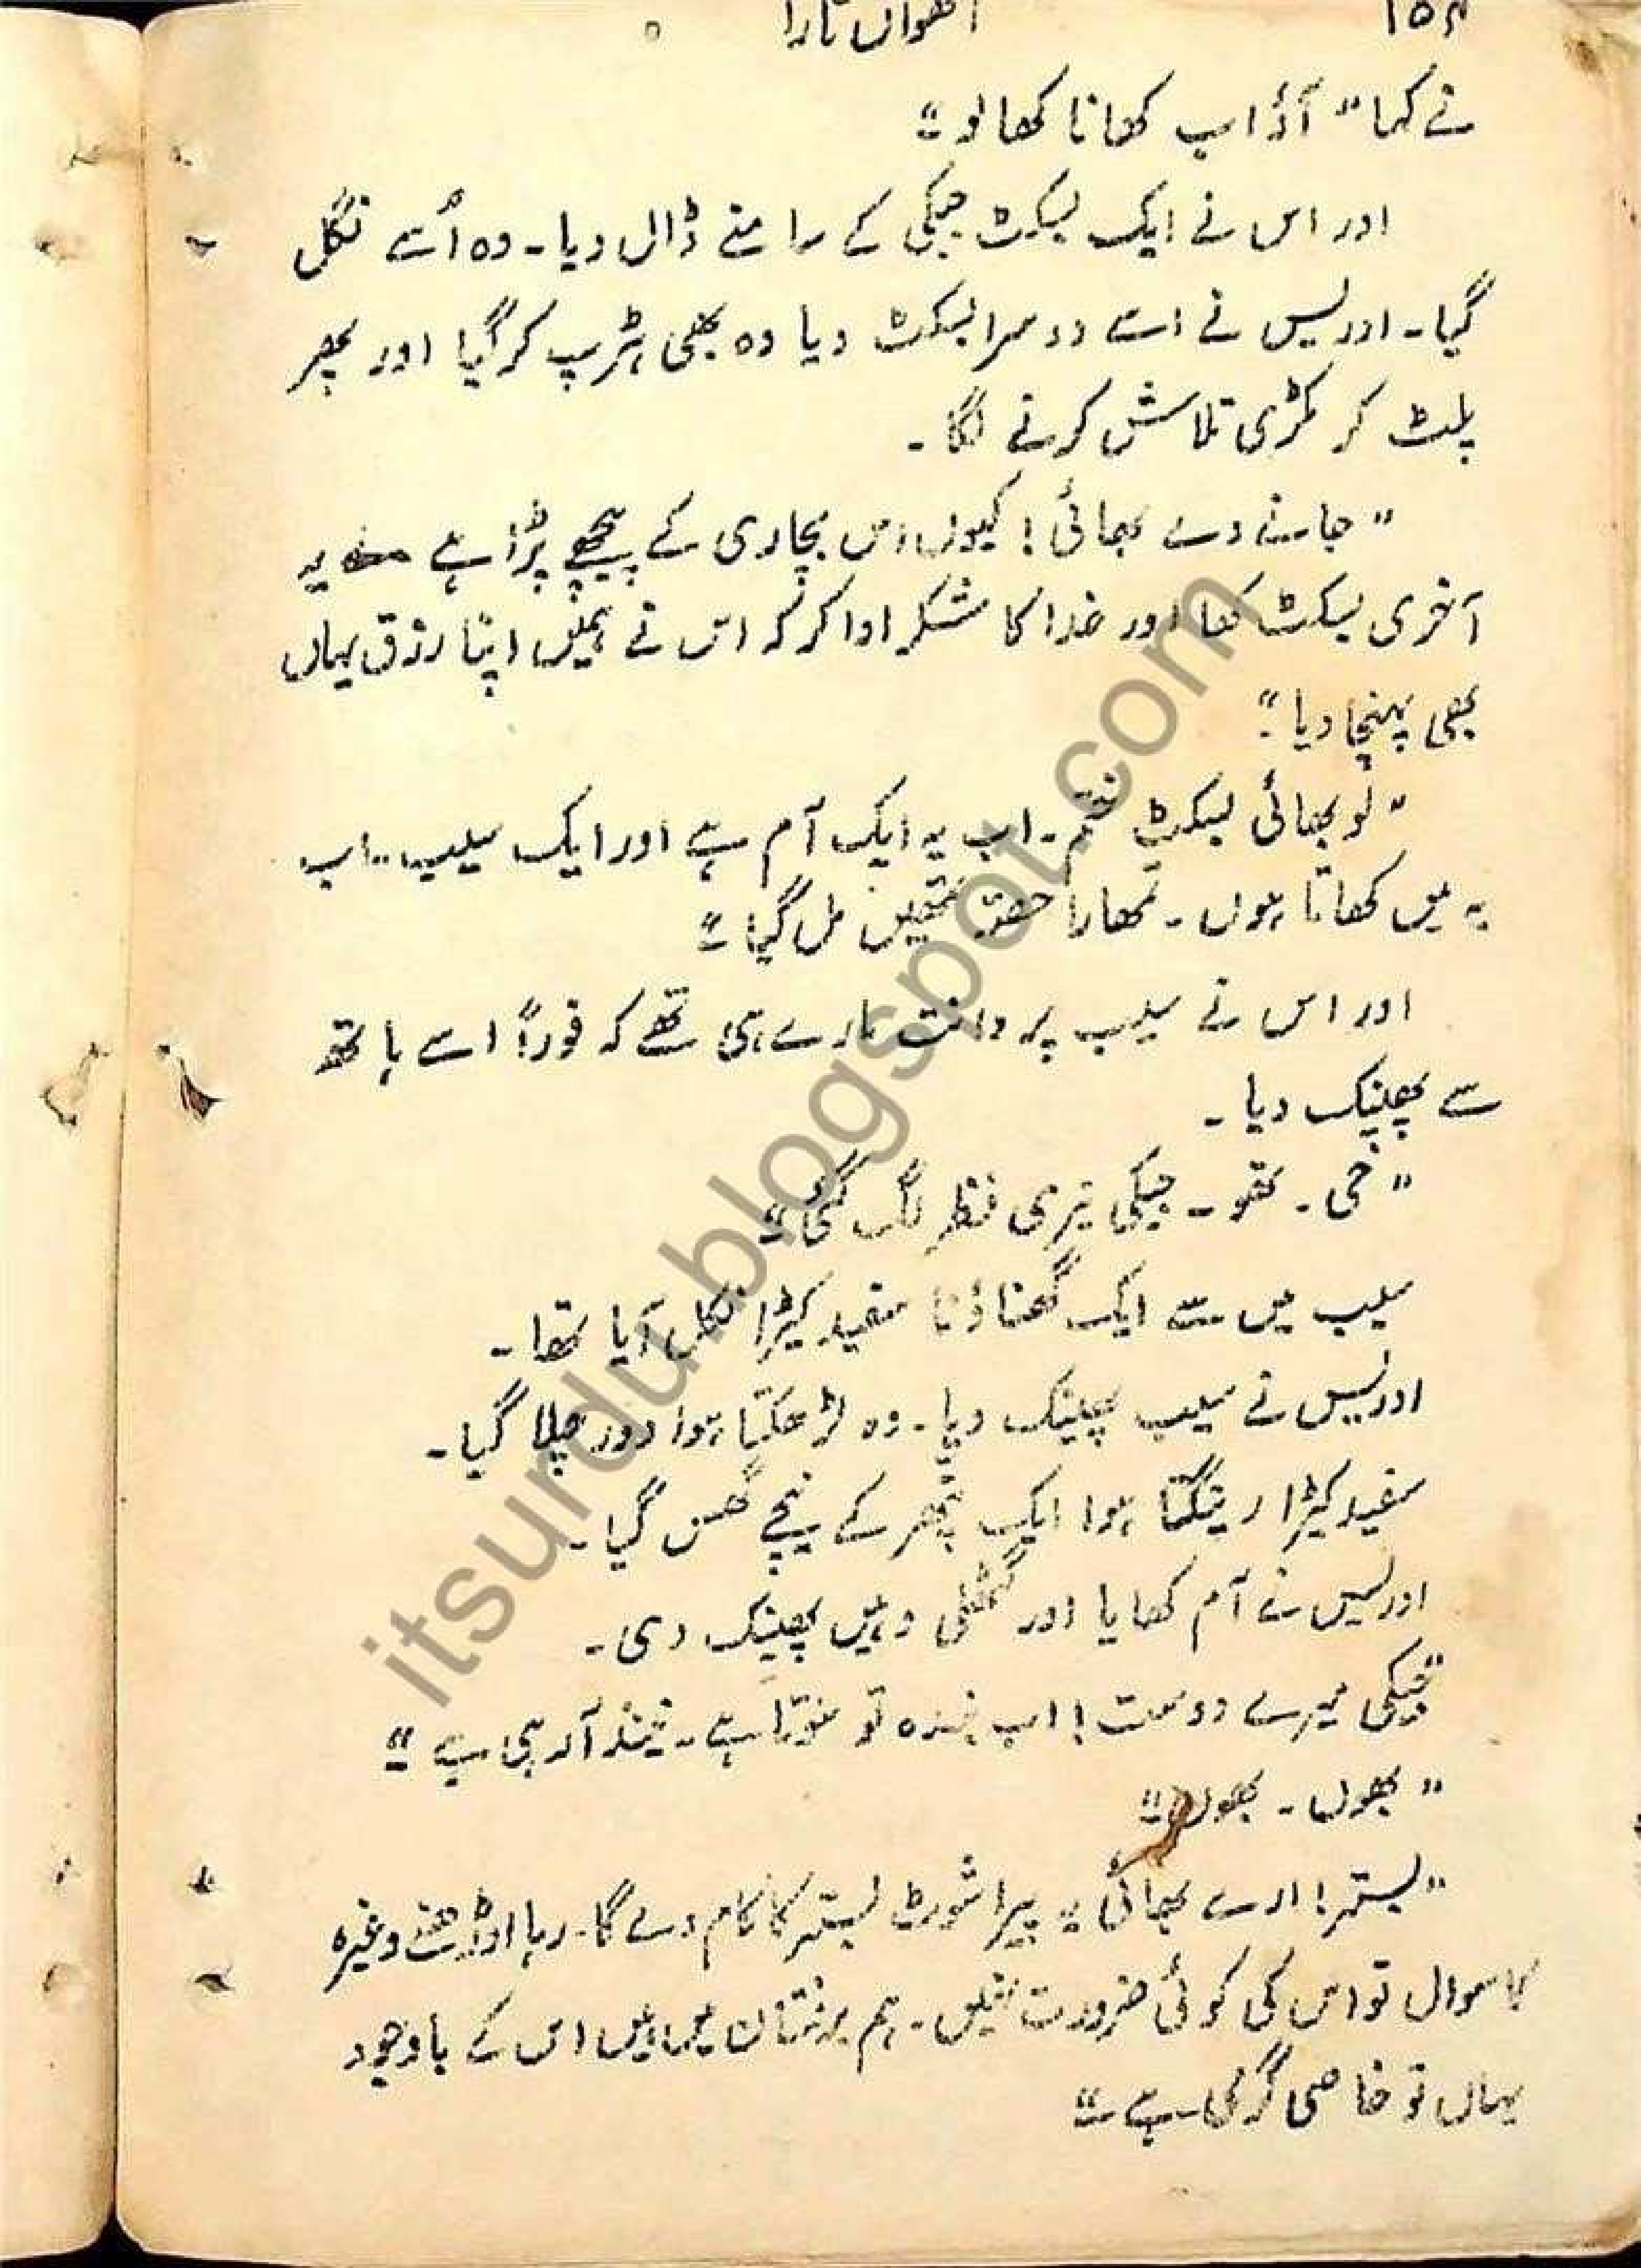 ۱۵۴ اٹھواں تارا
نے کہا “ آؤ اب کھانا کھا لو ”
اور اس نے ایک بسکٹ جیکی کے سامنے ڈال دیا۔ وہ اُسے نگل
گیا۔ ادریس نے اسے دوسرا بسکٹ دیا وہ بھی ہڑپ کر گیا اور پھر
پلٹ کر مکڑی تلاش کرنے لگا۔
“ جانے دے بھائی! کیوں اس بچاری کے پیچھے پڑا ہے یہ
آخری بسکٹ کھا اور خدا کا شکر ادا کر کہ اس نے ہمیں اپنا رزق یہاں
بھی پہنچا دیا ”
“ لو بھائی بسکٹ ختم۔ اب یہ ایک آم ہے اور ایک سیب۔۔ اب
یہ میں کھاتا ہوں۔ تمھارا حصہ تمھیں مل گیا ”
اور اس نے سیب پر دانت مارے ہی تھے کہ فوراً اسے ہاتھ
سے پھینک دیا۔
“ خی۔ تھو۔ جیکی تیری نظر لگ گئی ”
سیب میں سے ایک گھناؤنا سفید کیڑا نکل آیا تھا۔
ادریس نے سیب پھینک دیا۔ وہ لڑھکتا ہوا دور چلا گیا۔
سفید کیڑا رینگتا ہوا ایک پتھر کے نیچے گھس گیا۔
ادریس نے آم کھایا اور گٹھلی وہیں پھینک دی۔
“ جیکی میرے دوست! اب بندہ تو سوتا ہے۔ نیند آ رہی ہے ”
“ بھوں۔ بھوں ”
“ بستر! ارے بھائی یہ پیراشوٹ بستر کا کام دے گا۔ رہا اوڑھنے وغیرہ
کا سوال تو اس کی کوئی ضرورت نہیں۔ ہم برفستان میں ہیں اس کے باوجود
یہاں تو خاصی گرمی ہے ”
itsurdu.blogspot.com